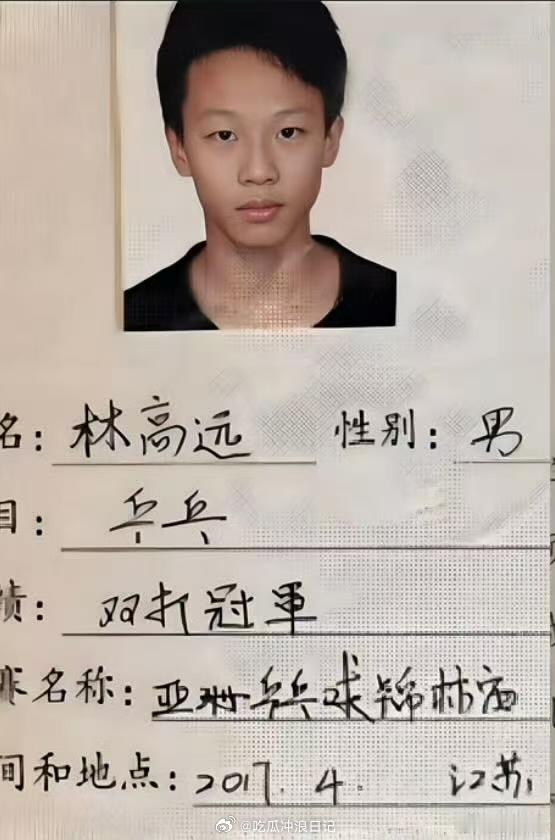 名：林高远 性别：男
目：乒乓
绩：双打冠军
名称：亚洲乒乓球锦标赛
间和地点：2017.4. 江苏
@吃瓜冲浪日记